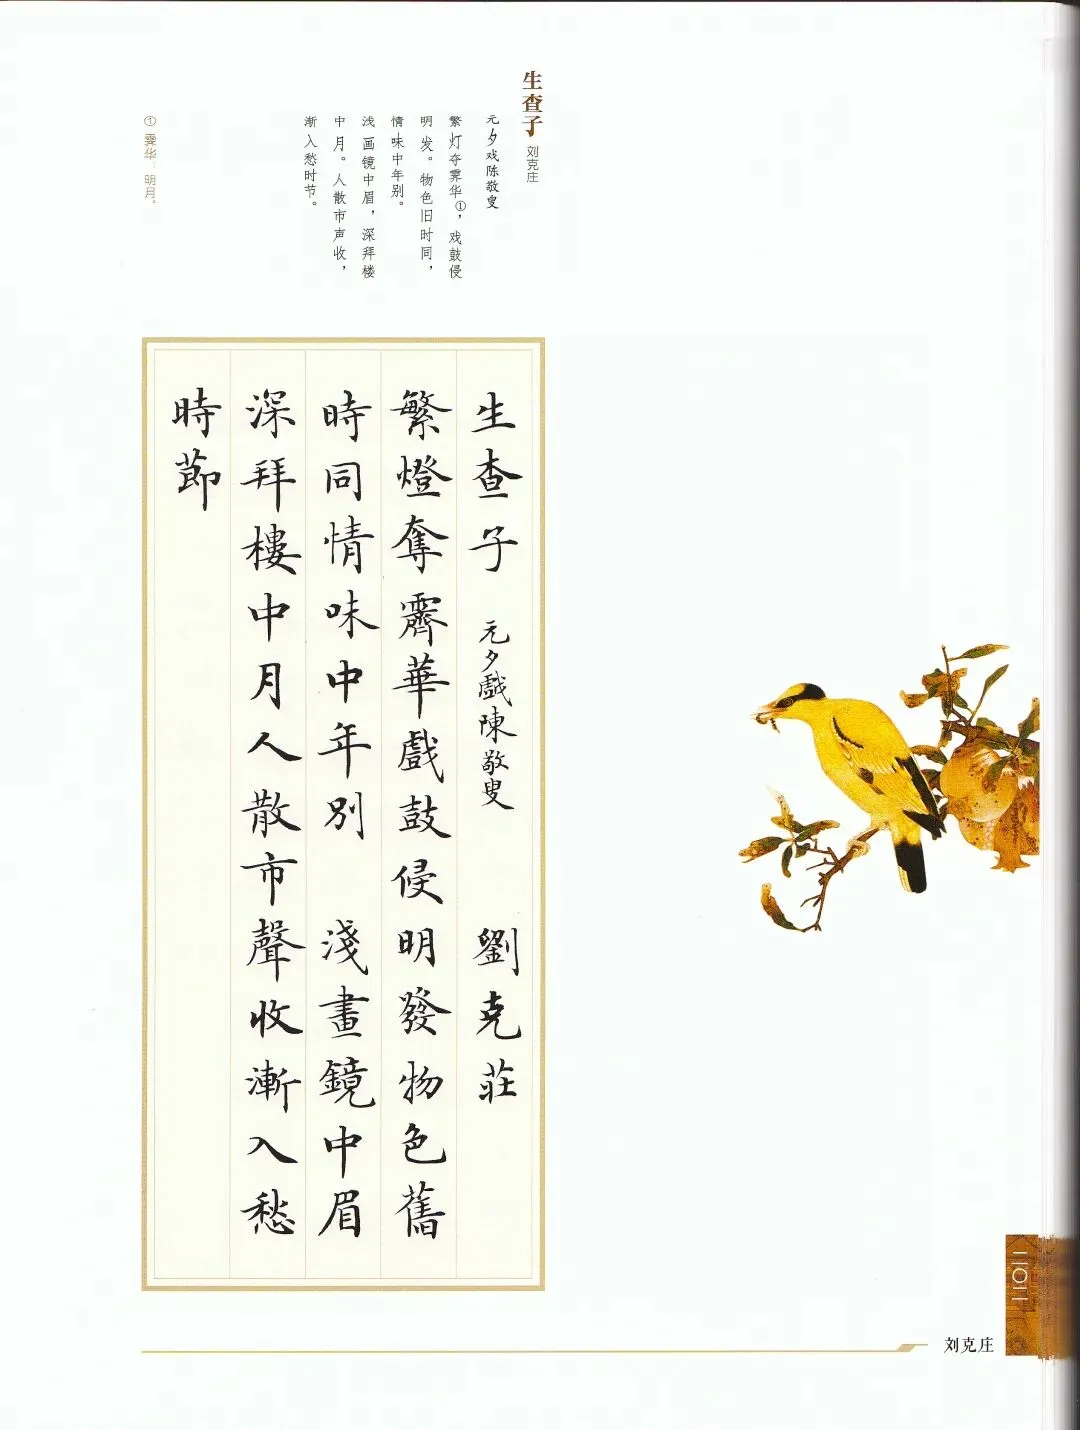 生查子 刘克庄
元夕戏陈敬叟
繁灯夺霁华①，戏鼓侵
明发。物色旧时同，
情味中年别。
浅画镜中眉，深拜楼
中月。人散市声收，
渐入愁时节。
① 霁华：明月。
生查子 元夕戲陳敬叟 劉克莊
繁燈奪霽華戲鼓侵明發物色舊
時同情味中年別 淺畫鏡中眉
深拜樓中月人散市聲收漸入愁
時節
二〇二
刘克庄